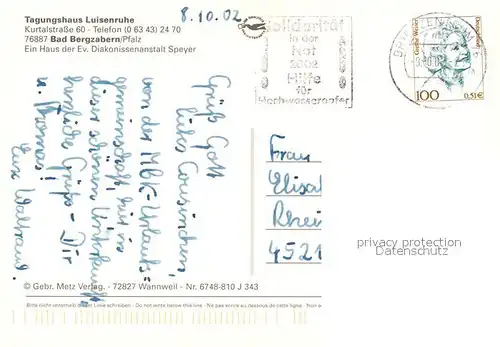 Tagungshaus Luisenruhe
Kurtalstraße 60 - Telefon (0 63 43) 24 70
76887 Bad Bergzabern/Pfalz
Ein Haus der Ev. Diakonissenanstalt Speyer
8.10.02
Solidarität
in der
Not
2002
Hilfe
für
Hochwasseropfer
100
0,51 €
Grüß Gott
liebes Cousinchen,
von der MBK-Urlaubs-
gemeinschaft hier in
dieser schönen Unterkunft
herzliche Grüße - Dir
u. Thomas!
Eure Waltraud
Frau
Elisa
Rhei
4521
privacy protection
Datenschutz
© Gebr. Metz Verlag - 72827 Wannweil - Nr. 6748-810 J 343
Bitte nicht unterhalb dieser Linie schreiben - Do not write below this line - Ne pas écrire au dessous de cette ligne